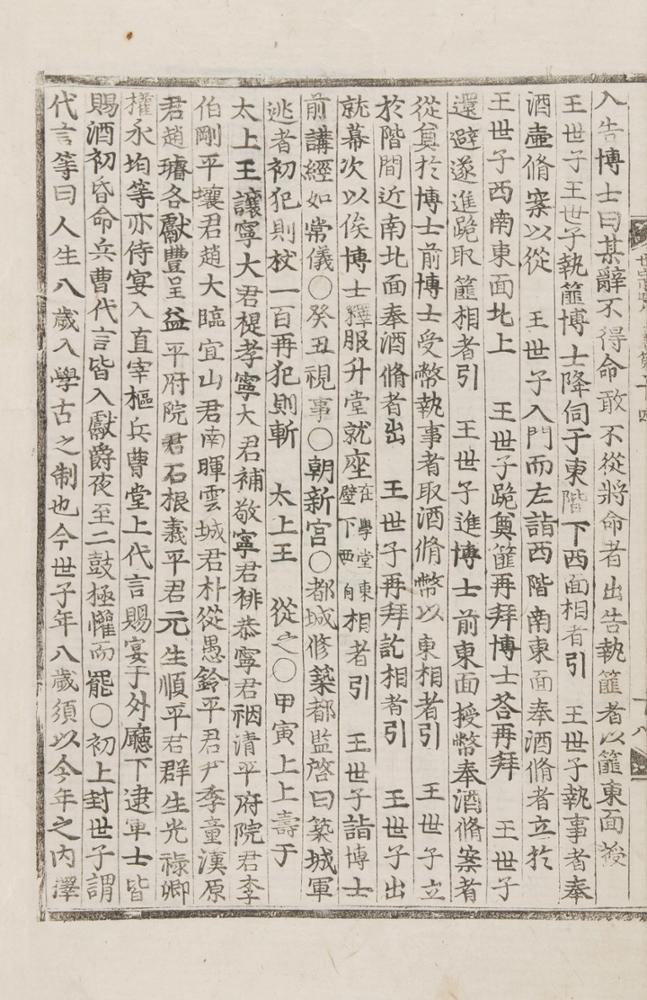 入告博士曰某辭不得命敢不從將命者出告執篚者以篚東面授
王世子王世子執篚博士降伺于東階下西面相者引　王世子執事者奉
酒壷脩案以從　王世子入門而左詣西階南東面奉酒脩者立於
王世子西南東面北上　王世子跪奠篚再拜博士荅再拜　王世子
還避遂進跪取篚相者引　王世子進博士前東面授幣奉酒脩案者
從奠於博士前博士受幣執事者取酒脩幣以東相者引　王世子立
於階間近南北面奉酒脩者出　王世子再拜訖相者引　王世子出
就幕次以俟博士釋服升堂就座在學堂東壁下西自相者引　王世子詣博士
前講經如常儀○癸丑視事○朝新宮○都城修築都監啓曰築城軍
逃者初犯則杖一百再犯則斬　太上王　從之○甲寅上上壽于
太上王讓寧大君禔孝寧大君補敬寧君裶恭寧君裀清平府院君李
伯剛平壤君趙大臨宜山君南暉雲城君朴從愚鈴平君尹李童漢原
君趙璿各獻豐呈益平府院君石根義平君元生順平君群生光祿卿
權永均等亦侍宴入直宰樞兵曹堂上代言賜宴于外廳下逮軍士皆
賜酒初昏命兵曹代言皆入獻爵夜至二鼓極懽而罷○初上封世子謂
代言等曰人生八歲入學古之制也今世子年八歲須以今年之內擇